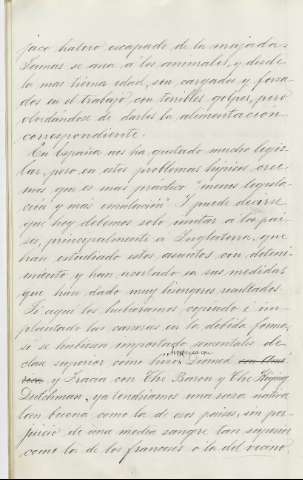 jaco haberse escapado de la majada.
Jamas se ama a los animales, y desde
la mas tierna edad, son cargados y forza-
dos en el trabajo con terribles golpes, pero
olvidandose de darles la alimentación
correspondiente.
En España nos ha gustado mucho legis-
lar, pero en estos problemas hípicos cree-
mos que es mas práctico "menos legisla-
ción y mas emulación" Y puede decirse
que hoy debemos solo imitar a los paí-
ses, principalmente á Inglaterra, que
han estudiado estos asuntos con deteni-
miento y han acertado en sus medidas
que han dado muy buenos resultados.
Si aquí los hubieramos copiado é im-
plantado las carreras en la debida forma,
si se hubiesen importado sementales de
clase superior como hizo Leoned
y Francia con The Baron y The Flying
Dutchman, ya tendriamos una raza nativa
tan buena como la de esos países, sin per-
juicio de una media sangre tan superior
como la de los franceses o la del vecino